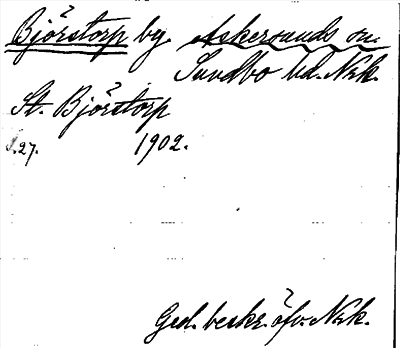 Björstorp by Askersunds sn.
Sundbo hd. Nrk.
St. Björstorp
S.27. 1902.
Geol. beskr. öfv. Nrk.